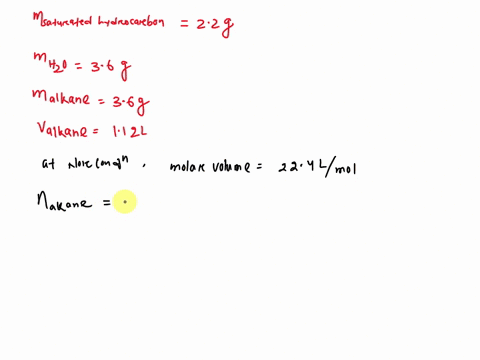 m saturated hydrocarbon = 2.2 g
mH2O = 3.6 g
malkane = 3.6 g
Valkane = 1.12 L
at , molar volume = 22.4 L/mol
nalkane =